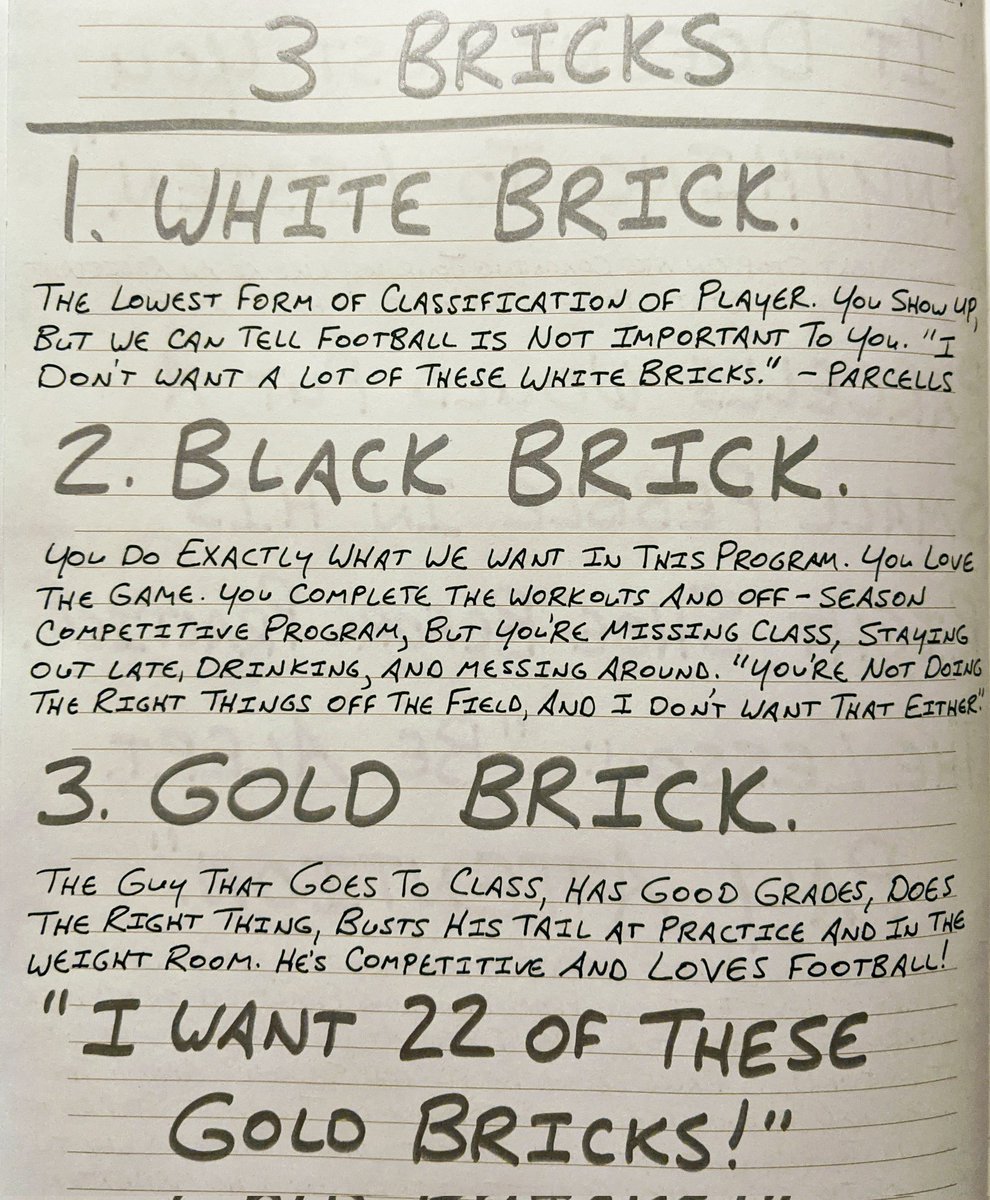 3 BRICKS
1. WHITE BRICK.
THE LOWEST FORM OF CLASSIFICATION OF PLAYER. YOU SHOW UP,
BUT WE CAN TELL FOOTBALL IS NOT IMPORTANT TO YOU. "I
DON'T WANT A LOT OF THESE WHITE BRICKS." - PARCELLS
2. BLACK BRICK.
YOU DO EXACTLY WHAT WE WANT IN THIS PROGRAM. YOU LOVE
THE GAME. YOU COMPLETE THE WORKOUTS AND OFF-SEASON
COMPETITIVE PROGRAM, BUT YOU'RE MISSING CLASS, STAYING
OUT LATE, DRINKING, AND MESSING AROUND. "YOU'RE NOT DOING
THE RIGHT THINGS OFF THE FIELD, AND I DON'T WANT THAT EITHER."
3. GOLD BRICK.
THE GUY THAT GOES TO CLASS, HAS GOOD GRADES, DOES
THE RIGHT THING, BUSTS HIS TAIL AT PRACTICE AND IN THE
WEIGHT ROOM. HE'S COMPETITIVE AND LOVES FOOTBALL!
"I WANT 22 OF THESE
GOLD BRICKS!"